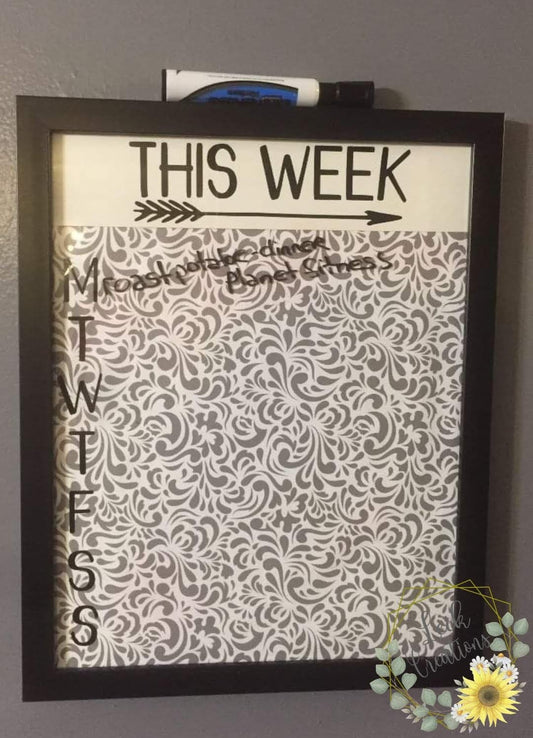 THIS WEEK
M roast potatoe-dinner
Planet fitness
T
W
T
F
S
S
Creations